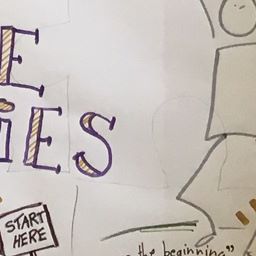 E
iES
START
HERE
the beginning"